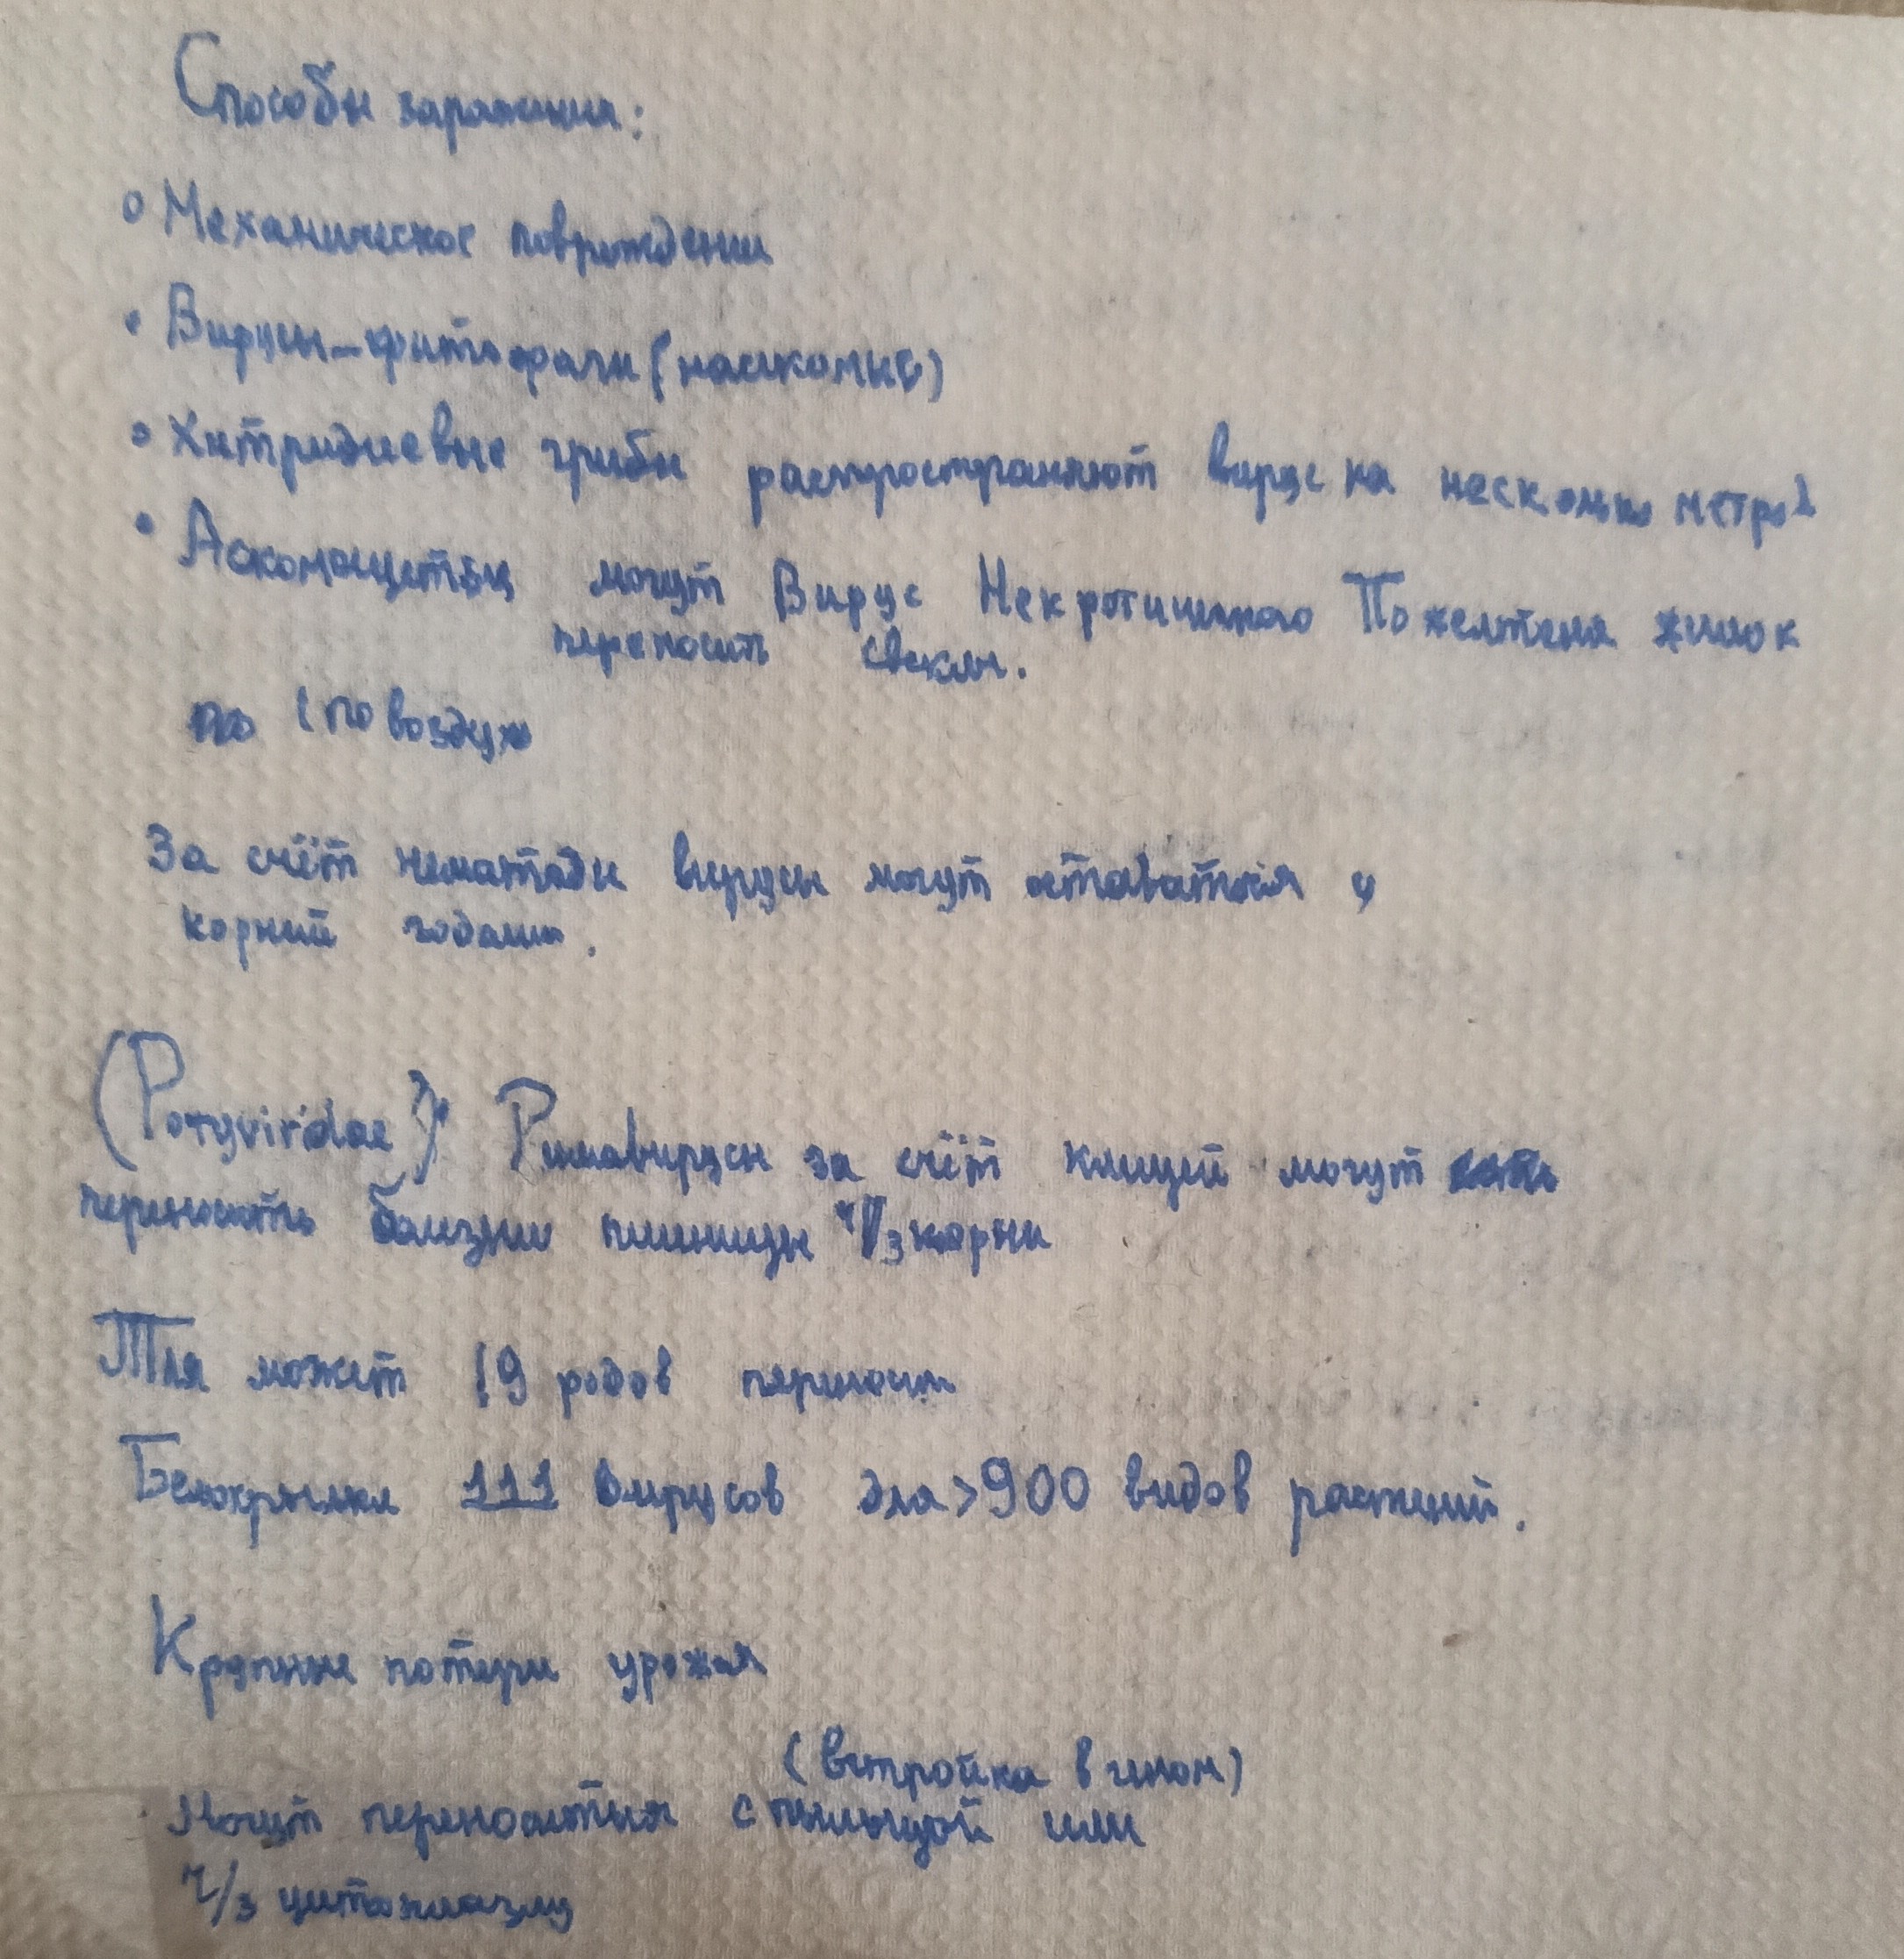 Способы заражения:
Механическое повреждении
Вирусы-фитофаги (насикомые)
Хитридиевые грибы распространяют вирус на несколько метров
Аскомацеты могут Вирус Некротичного Пожелтеня жилок
переносить свеклы.
по (по воздуху
За счёт нематоды вирусы могут оставаться у
корний годами.
(Potyviridae) за счёт клищей могут
переносить болезни пшеницы ч/з корни
Тля может 19 родов переносить
Белокрылки 111 вирусов для >900 видов растений.
Крупные потери урожая
(встройка в геном)
Могут переносится с пыльцой или
ч/з цитоплазму